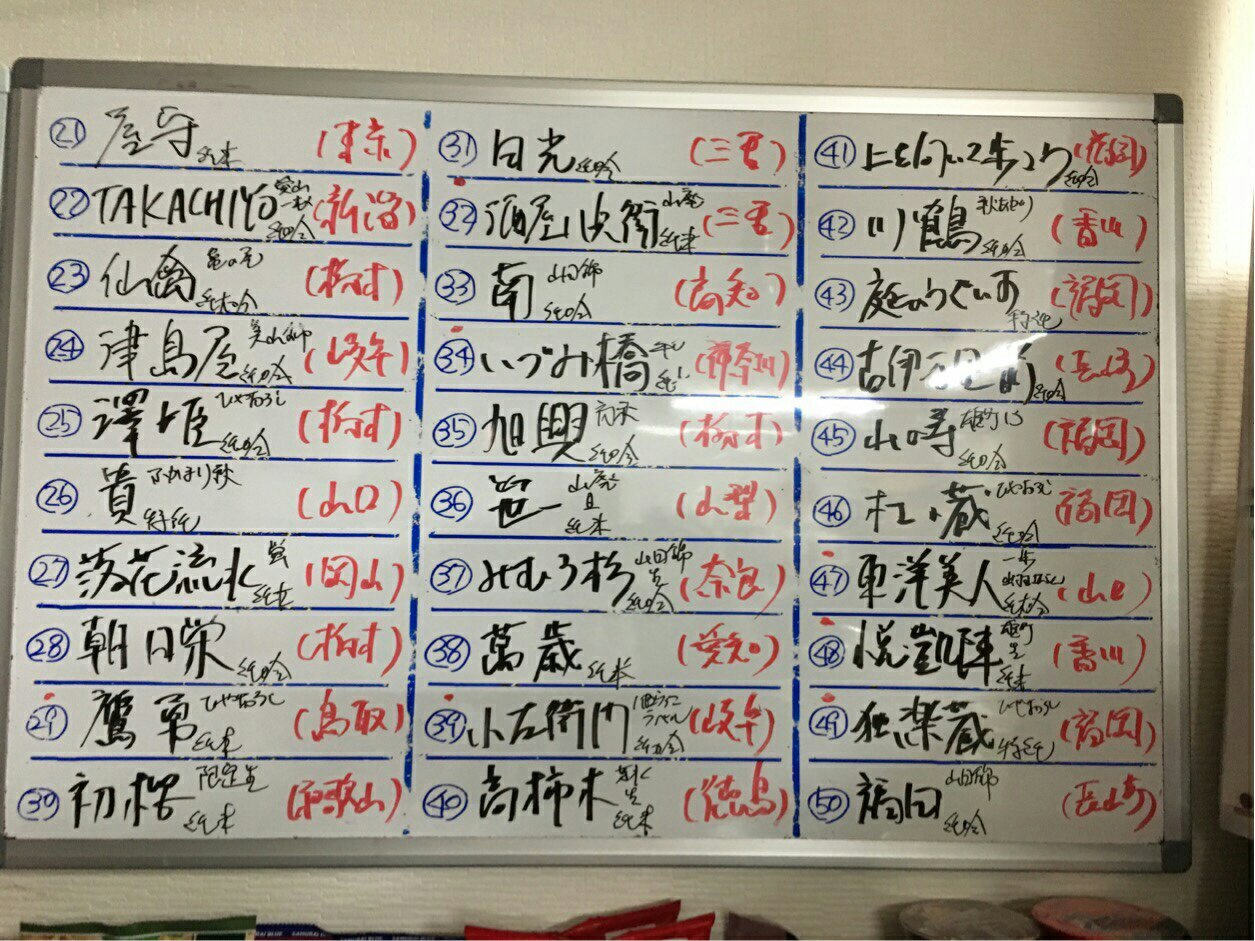 ㉑ 屋守 純米 (東京)
㉒ TAKACHIYO 愛山 純吟 (新潟)
㉓ 仙禽 亀の尾 純大吟 (栃木)
㉔ 津島屋 美山錦 純吟 (岐阜)
㉕ 澤姫 ひやおろし 純吟 (栃木)
㉖ 貴 ふかまり秋 特純 (山口)
㉗ 落花流水 純米 (岡山)
㉘ 朝日栄 純吟 (栃木)
㉙ 鷹勇 ひやおろし 純米 (鳥取)
㉚ 初桜 限定生 純米 (和歌山)
㉛ 日光 純吟 (三重)
㉜ 酒屋八兵衛 山廃 純米 (三重)
㉝ 南 山田錦 純吟 (高知)
㉞ いづみ橋 (神奈川)
㉟ 旭興 純吟 (栃木)
㊱ 笹一 山廃 純米 (山梨)
㊲ みむろ杉 山田錦 生 純吟 (奈良)
㊳ 萬歳 純米 (愛知)
㊴ 小左衛門 純吟 (岐阜)
㊵ 高柿木 生 純米 (徳島)
㊶ 上を向いて歩こう 純吟
㊷ 川鶴 秋あがり 純吟 (香川)
㊸ 庭のうぐいす 特純 (福岡)
㊹ 純吟 (長崎)
㊺ 山の壽 雄町 純吟 (福岡)
㊻ 杜の蔵 ひやおろし 純吟 (福岡)
㊼ 東洋美人 純大吟 (山口)
㊽ 悦凱陣 雄町 生 純米 (香川)
㊾ 独楽蔵 ひやおろし 特純 (福岡)
㊿ 福田 山田錦 純吟 (長崎)